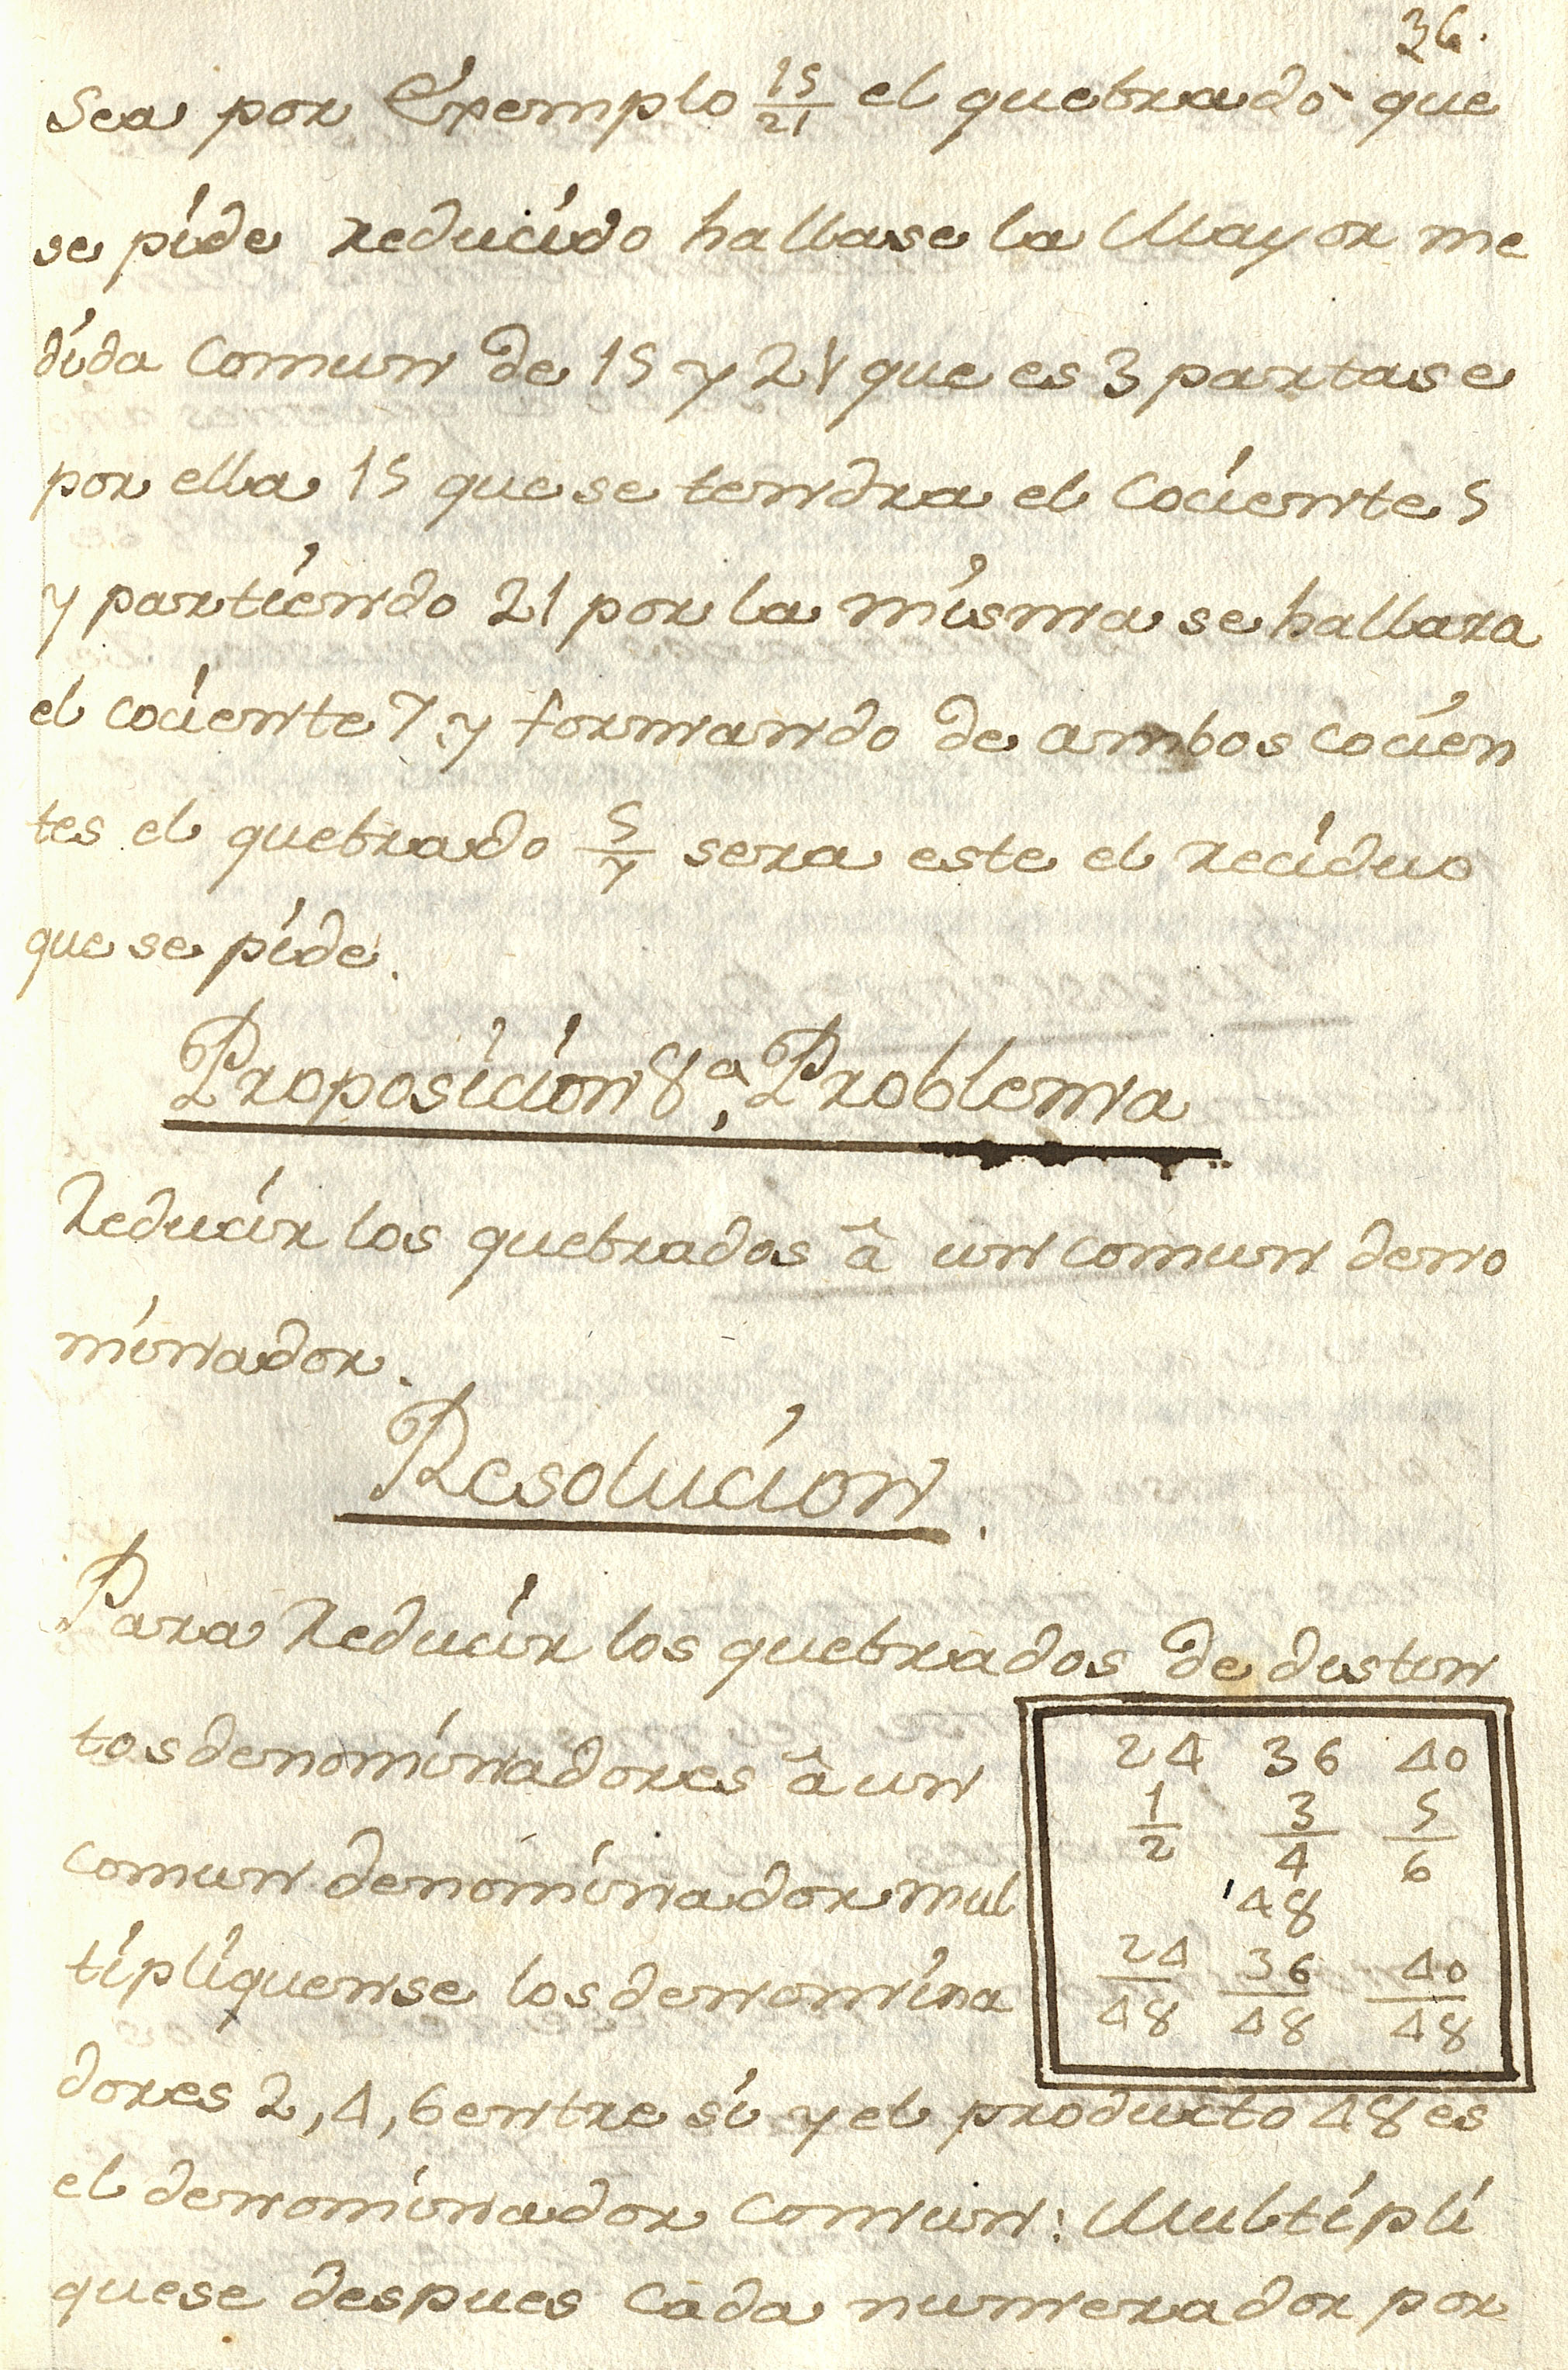 36.
Sea por Exemplo 15/21 el quebrado que
se pide reducido hallase la Mayor me
dida Comun de 15 y 21 que es 3 partase
por ella 15 que se tendra el Cociente 5
y partiendo 21 por la misma se hallara
el cociente 7 y formando de ambos cocien
tes el quebrado 5/7 sera este el reciduo
que se pide.
Proposicion 8ª, Problema
Reducir los quebrados â un comun deno
minador.
Resolucion.
Para Reducir los quebrados de distin
tos denominadores â un
comun denominador mul
tipliquense los denomina
dores 2, 4, 6 entre si y el producto 48 es
el denominador Comun: Multipli
quese despues Cada numerador por
24 36 40
1/2 3/4 5/6
48
24/48 36/48 40/48